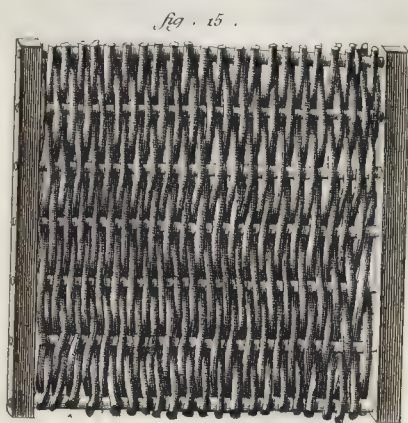 fig. 15.